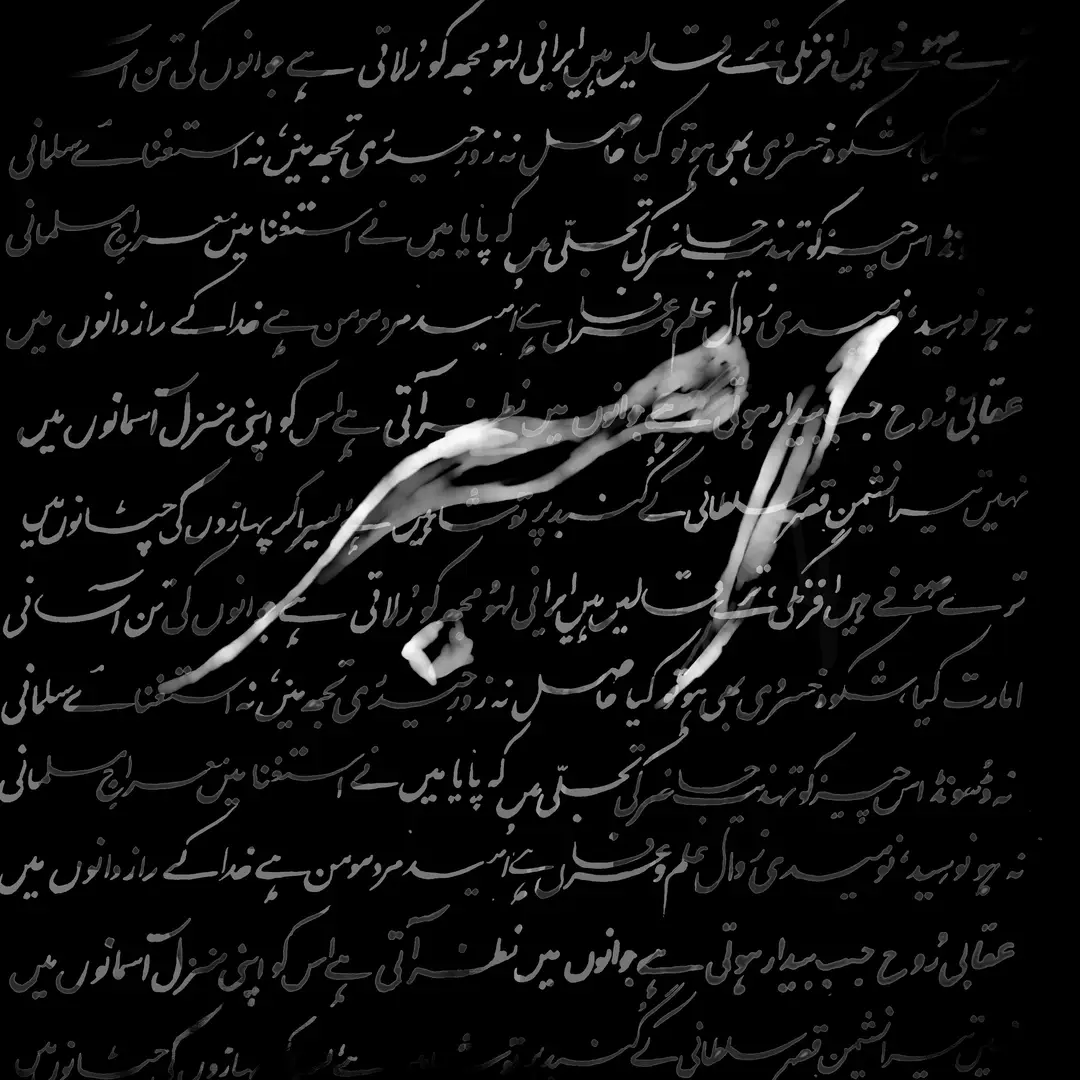 ترے صوفے ہیں افرنگی، ترے قالیں ہیں ایرانی لہُو مجھ کو رُلاتی ہے جوانوں کی تن
کیا، شکوہ خسرُوی بھی ہو تو کیا حاصل نہ زورِ حیدرُی تجھ میں، نہ استغنائے سلمانی
اس چیز کو تہذیبِ حاضر کی تجلّی میں کہ پایا میں نے استغنا میں معراجِ مسلمانی
نہ ہو نومید، نومیدی زوالِ علم و عرفاں ہے اُمیدِ مردِ مومن ہے خدا کے راز دانوں میں
عقابی رُوح جب بیدار ہوتی ہے جوانوں میں نظر آتی ہے اس کو اپنی منزل آسمانوں میں
نہیں تیرا نشیمن قصرِ سلطانی کے گُنبد پر تو شاہیں ہے بسیرا کر پہاڑوں کی چٹانوں میں
ابر
ترے صوفے ہیں افرنگی، ترے قالیں ہیں ایرانی لہُو مجھ کو رُلاتی ہے جوانوں کی تن آسانی
امارت کیا، شکوہ خسرُوی بھی ہو تو کیا حاصل نہ زورِ حیدرُی تجھ میں، نہ استغنائے سلمانی
نہ ڈُھونڈ اس چیز کو تہذیبِ حاضر کی تجلّی میں کہ پایا میں نے استغنا میں معراجِ مسلمانی
نہ ہو نومید، نومیدی زوالِ علم و عرفاں ہے اُمیدِ مردِ مومن ہے خدا کے راز دانوں میں
عقابی رُوح جب بیدار ہوتی ہے جوانوں میں نظر آتی ہے اس کو اپنی منزل آسمانوں میں
نہیں تیرا نشیمن قصرِ سلطانی کے گُنبد پر تو ہے پہاڑوں کی چٹانوں میں